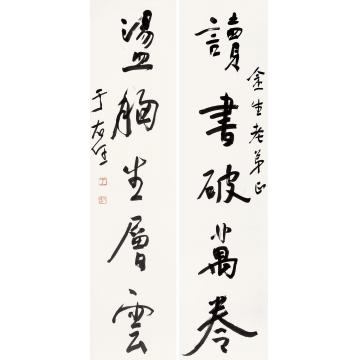 讀書破萬卷
金生老弟正
盪胸生層雲
于右任